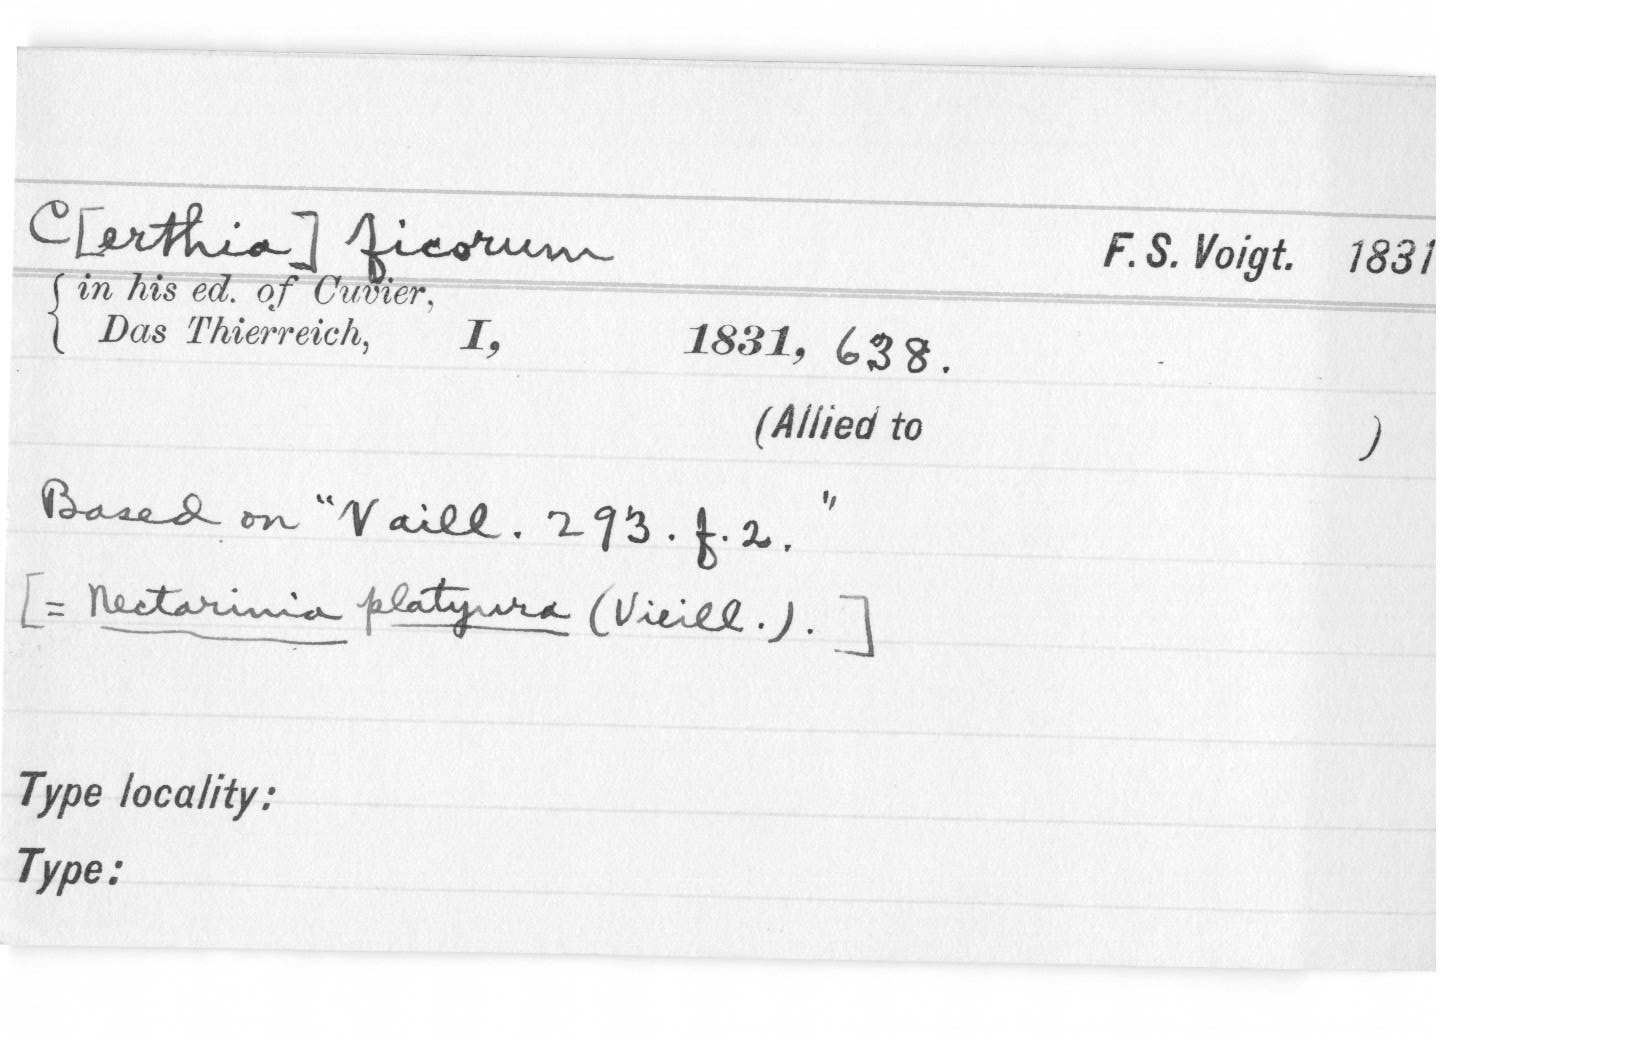 C[erthia] ficorum F. S. Voigt. 1831
{ in his ed. of Cuvier,
Das Thierreich, I, 1831, 638.
(Allied to )
Based on "Vaill. 293. f. 2."
[= Nectarinia platyura (Vieill.). ]
Type locality:
Type: